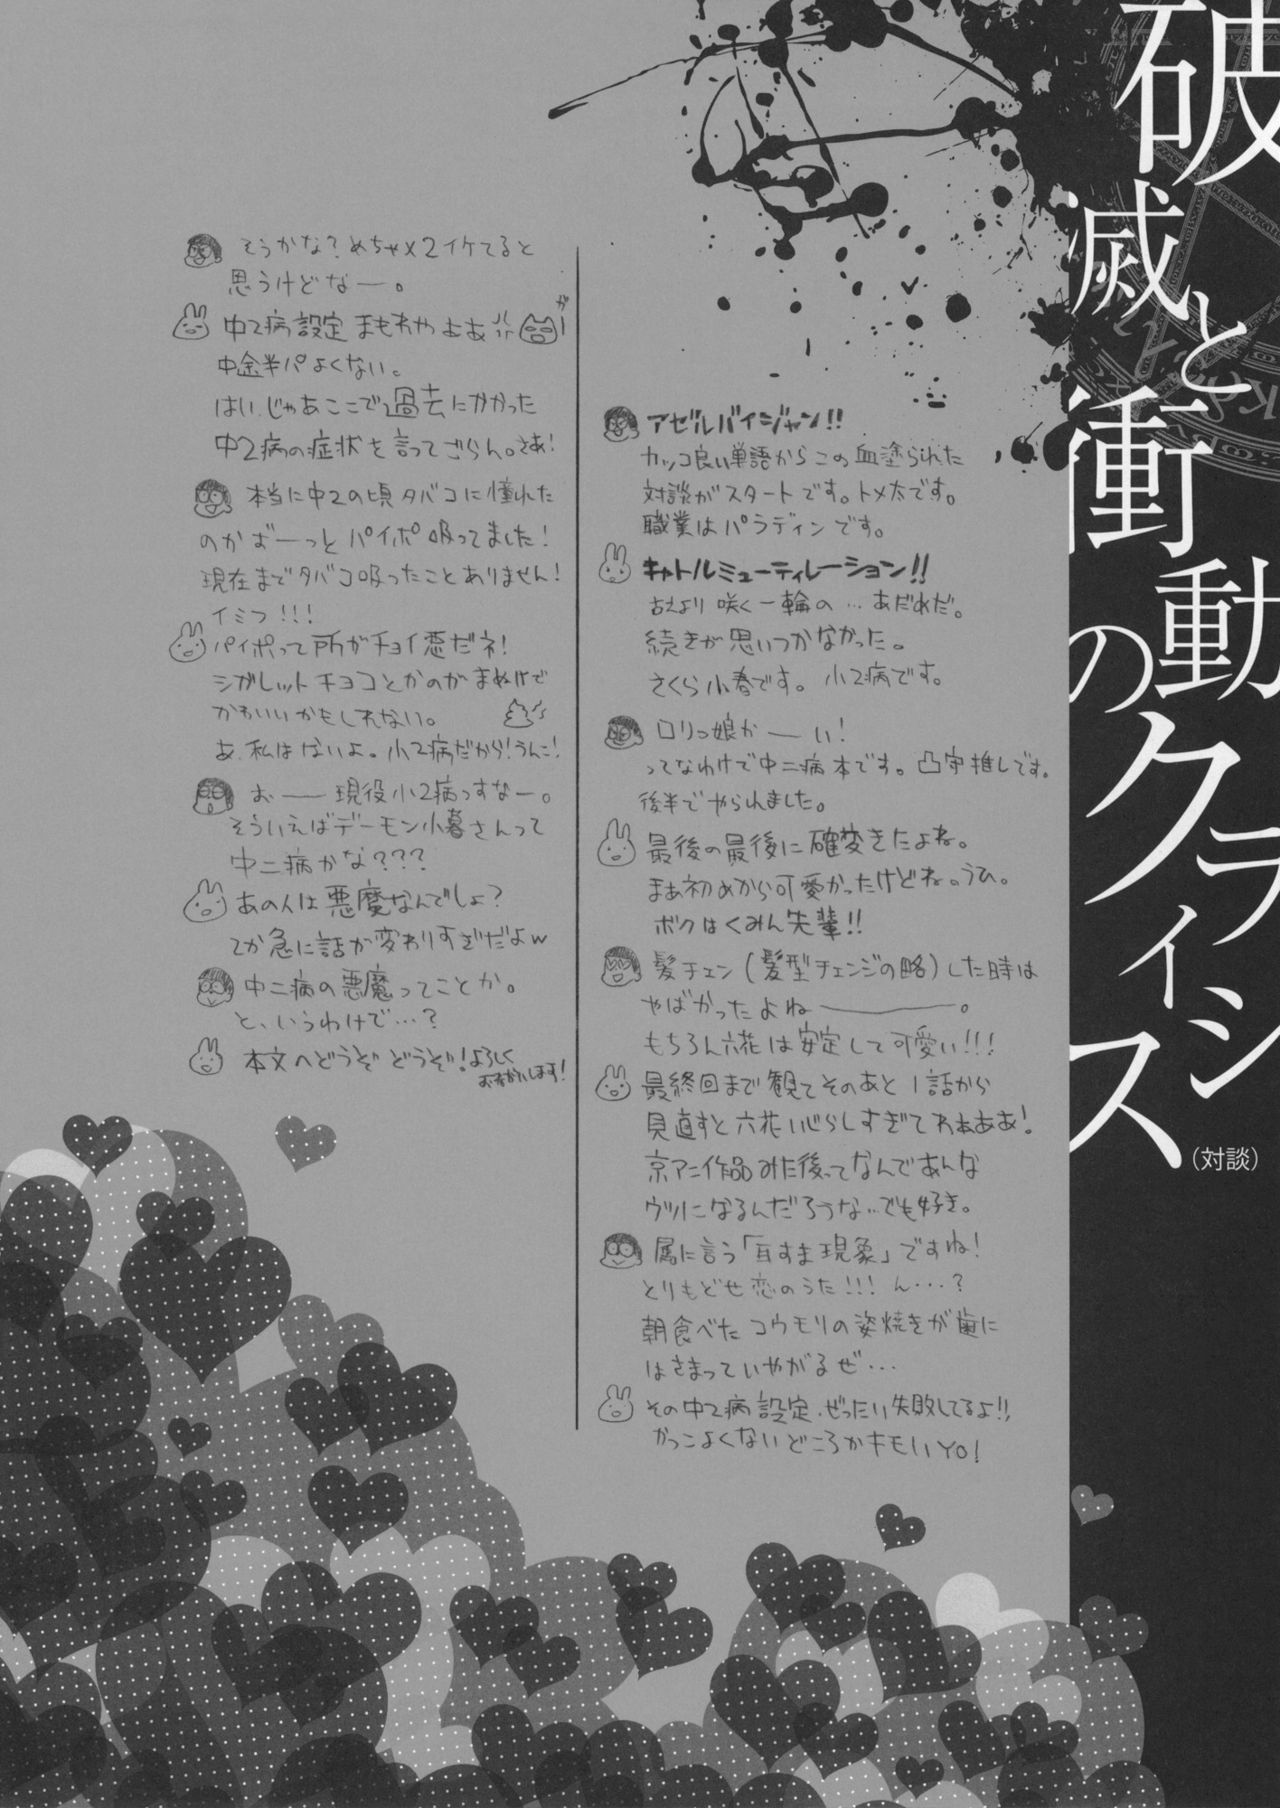 破滅と衝動のクライシス
（対談）
アゼルバイジャン!!
カッコ良い単語からこの血塗られた
対談がスタートです。トメ太です。
職業はパラディンです。
キャトルミューティレーション!!
古えより咲く一輪の…あだめだ。
続きが思いつかなかった。
さくら小春です。小2病です。
ロリっ娘かーい!
ってなわけで中二病本です。凸守推しです。
後半でやられました。
最後の最後に確変きたよね。
まぁ初めから可愛かったけどね。うひ。
ボクはくみん先輩!!
髪チェン(髪型チェンジの略)した時は
やばかったよねー。
もちろん六花は安定して可愛い!!!
最終回まで観てそのあと1話から
見直すと六花いじらしすぎてわぁああ!
京アニ作品みた後ってなんであんな
ウツになるんだろうな…でも好き。
属に言う「耳すま現象」ですね!
とりもどせ恋のうた!!! ん…?
朝食べたコウモリの姿焼きが歯に
はさまっていやがるぜ…
その中2病設定、ぜったい失敗してるよ!!
かっこよくないどころかキモいYO!
そうかな?めちゃx2イケてると
思うけどなー。
中2病設定まもれやぁぁ
がー
中途半パよくない。
はい、じゃあここで過去にかかった
中2病の症状を言ってごらん。さあ!
本当に中2の頃タバコに憧れた
のかずーっとパイポ吸ってました!
現在までタバコ吸ったことありません!
イミフ!!!
パイポって所がチョイ悪だネ!
シガレットチョコとかのがまぬけで
かわいいかもしれない。
あ、私はないよ。小2病だから!うんこ!
おー現役小2病っすなー。
そういえばデーモン小暮さんって
中二病かな???
あの人は悪魔なんでしょ?
てか急に話が変わりすぎだよw
中二病の悪魔ってことか。
と、いうわけで…?
本文へどうぞどうぞ!よろしく
お願いします!